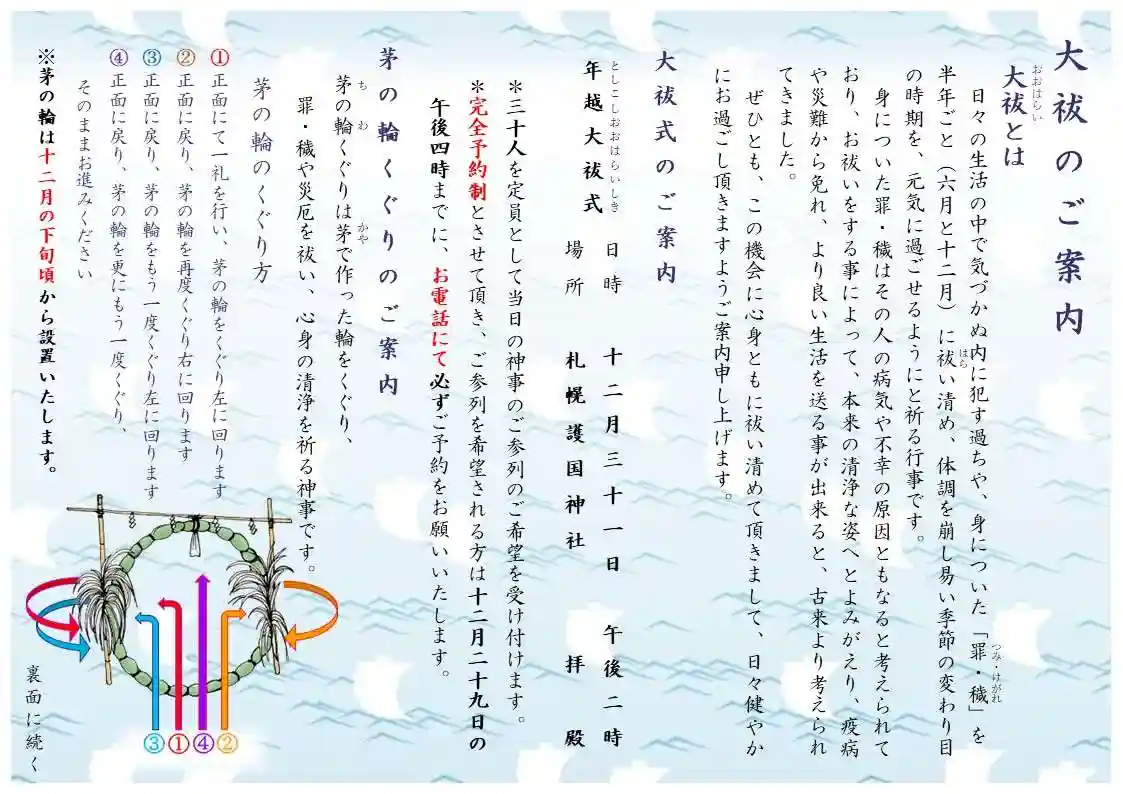 大祓のご案内
おおはらい
大祓とは
日々の生活の中で気づかぬ内に犯す過ちや、身についた「罪・穢」を
つみ・けがれ
半年ごと（六月と十二月）に祓い清め、体調を崩し易い季節の変わり目
はら
の時期を、元気に過ごせるようにと祈る行事です。
身についた罪・穢はその人の病気や不幸の原因ともなると考えられて
おり、お祓いをする事によって、本来の清浄な姿へとよみがえり、疫病
や災難から免れ、より良い生活を送る事が出来ると、古来より考えられ
てきました。
ぜひとも、この機会に心身ともに祓い清めて頂きまして、日々健やか
にお過ごし頂きますようご案内申し上げます。
大祓式のご案内
としこしおおはらいしき
年越大祓式 日時 十二月三十一日 午後二時
場所 札幌護国神社 拝殿
＊三十人を定員として当日の神事のご参列のご希望を受け付けます。
＊完全予約制とさせて頂き、ご参列を希望される方は十二月二十九日の
午後四時までに、お電話にて必ずご予約をお願いいたします。
茅の輪くぐりのご案内
ち わ かや
茅の輪くぐりは茅で作った輪をくぐり、
罪・穢や災厄を祓い、心身の清浄を祈る神事です。
茅の輪のくぐり方
①正面にて一礼を行い、茅の輪をくぐり左に回ります
②正面に戻り、茅の輪を再度くぐり右に回ります
③正面に戻り、茅の輪をもう一度くぐり左に回ります
④正面に戻り、茅の輪を更にもう一度くぐり、
そのままお進みください
※茅の輪は十二月の下旬頃から設置いたします。
③①④②
裏面に続く